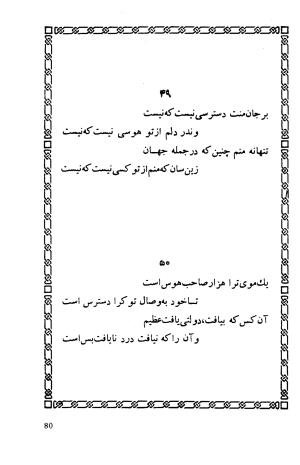 ۴۹
بر جان منت دسترسی نیست که نیست
وندر دلم از تو هوسی نیست که نیست
تنها نه منم چنین که در جمله جهان
زین سان که منم از تو کسی نیست که نیست
۵۰
یك موی ترا هزار صاحب هوس است
تا خود به وصال تو کرا دسترس است
آن کس که بیافت، دولتی یافت عظیم
و آن را که نیافت درد نایافت بس است
80